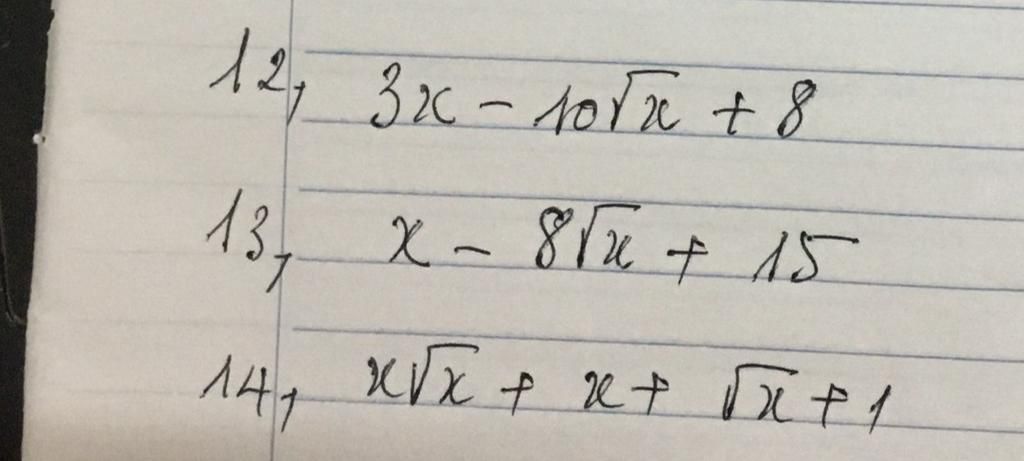 12, 3x - 10√x + 8
13, x - 8√x + 15
14, x√x + x + √x + 1